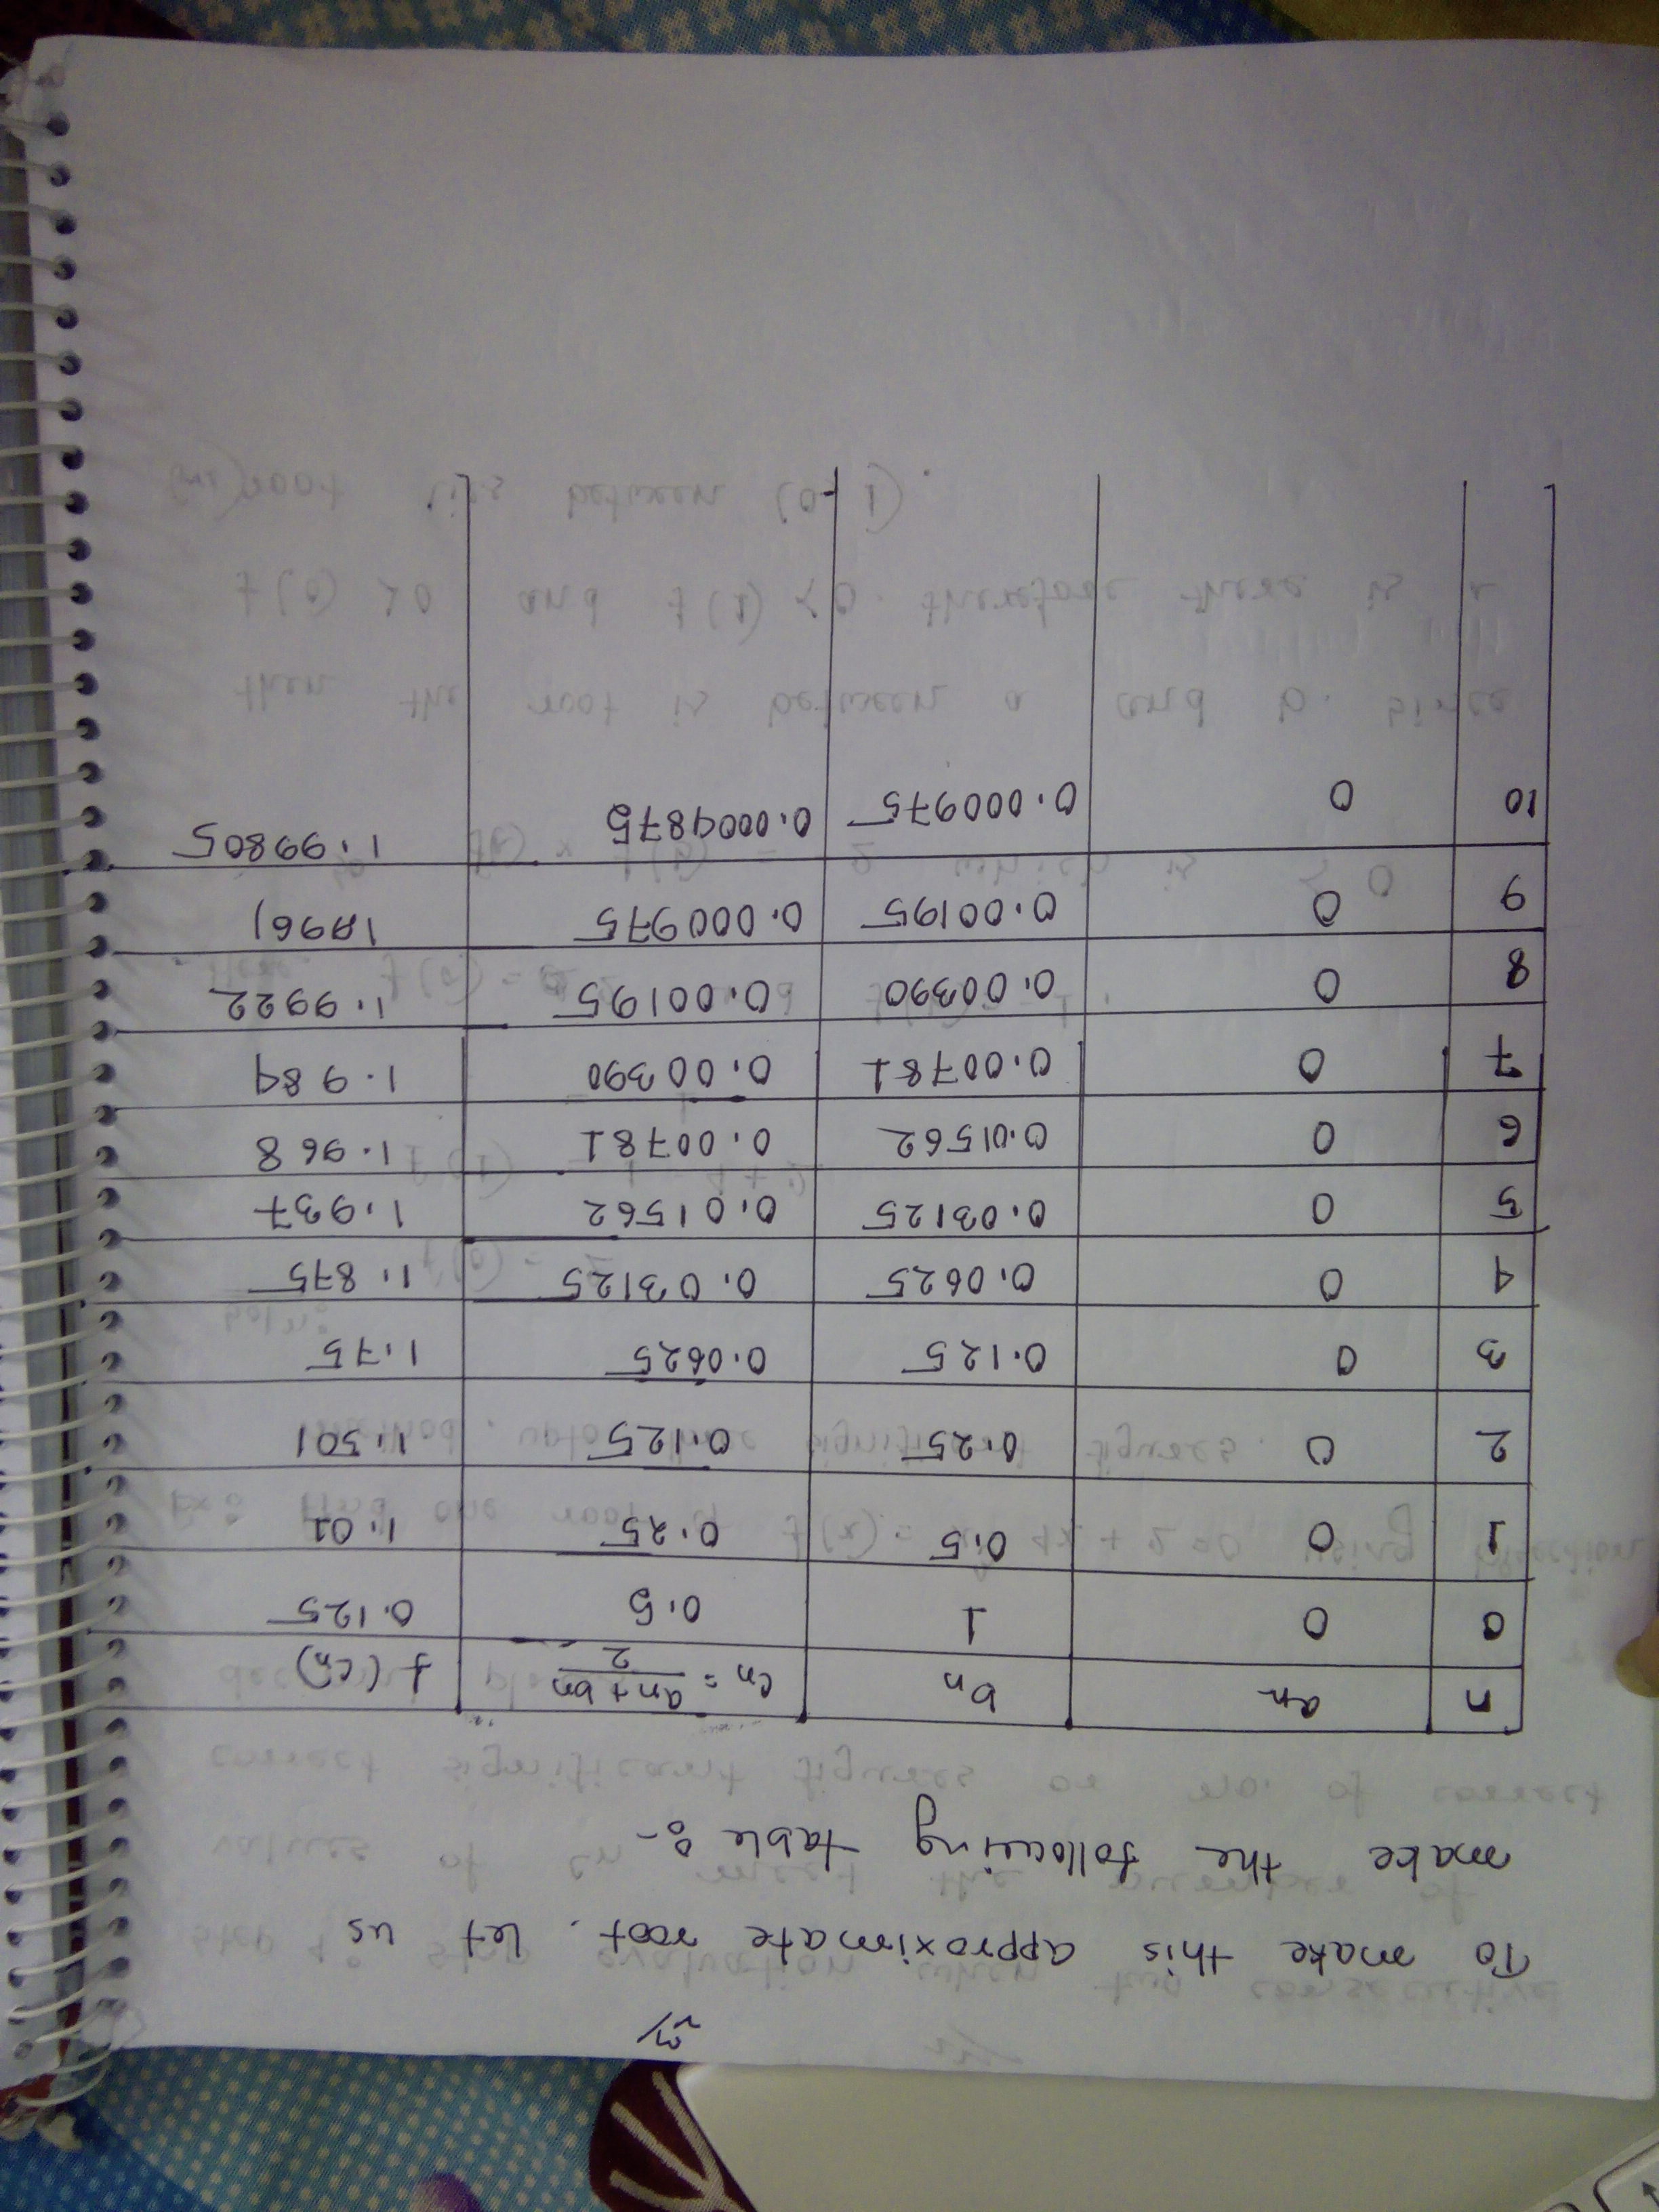 23/
To make this approximate root. Let us
make the following table :-
n an bn cn = an + bn / 2 f(cn)
0 0 1 0.5 0.125
1 0 0.5 0.25 1.01
2 0 0.25 0.125 1.501
3 0 0.125 0.0625 1.75
4 0 0.0625 0.03125 1.875
5 0 0.03125 0.01562 1.937
6 0 0.01562 0.00781 1.968
7 0 0.00781 0.00390 1.984
8 0 0.00390 0.00195 1.9922
9 0 0.00195 0.000975 1.9961
10 0 0.000975 0.0004875 1.99805